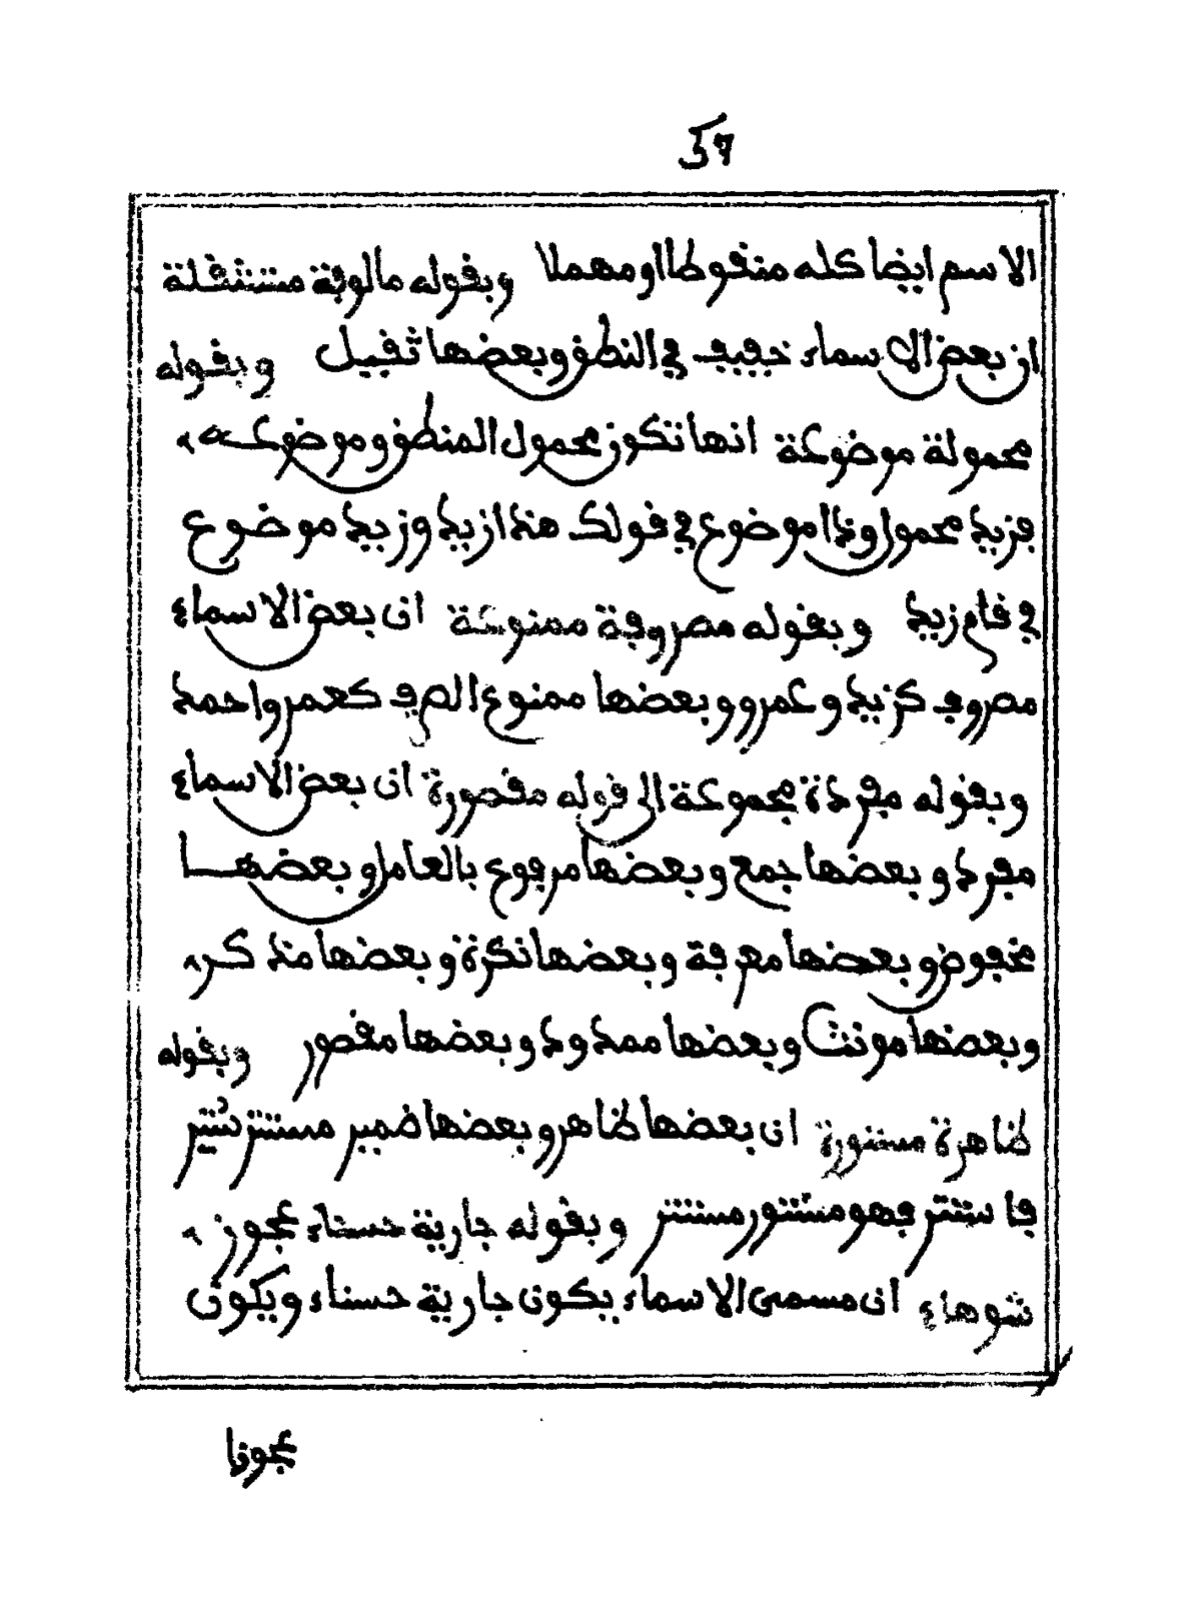 37
الاسم ايضا كله منقوطا او مهملا وبقوله مالوفة مستثقلة
ان بعض الاسماء خفيف في النطق وبعضها ثقيل وبقوله
محمولة موضوعة انها تكون محمول المنطق وموضوعه
فزيد محمول وذا موضوع في قولك هذا زيد وزيد موضوع
في قام زيد وبقوله مصروفة ممنوعة ان بعض الاسماء
مصروف كزيد وعمرو وبعضها ممنوع الصرف كعمر واحمد
وبقوله مفردة مجموعة الى قوله مقصورة ان بعض الاسماء
مفرد وبعضها جمع وبعضها مرفوع بالعامل وبعضها
مخفوض وبعضها معرفة وبعضها نكرة وبعضها مذكر
وبعضها مونث وبعضها ممدود وبعضها مقصور وبقوله
ظاهرة مستورة ان بعضها ظاهر وبعضها ضمير مستتر ستر
فاستتر فهو مستور مستتر وبقوله جارية حسناء عجوز
شوهاء ان مسمى الاسماء يكون جارية حسناء ويكون
عجوزا